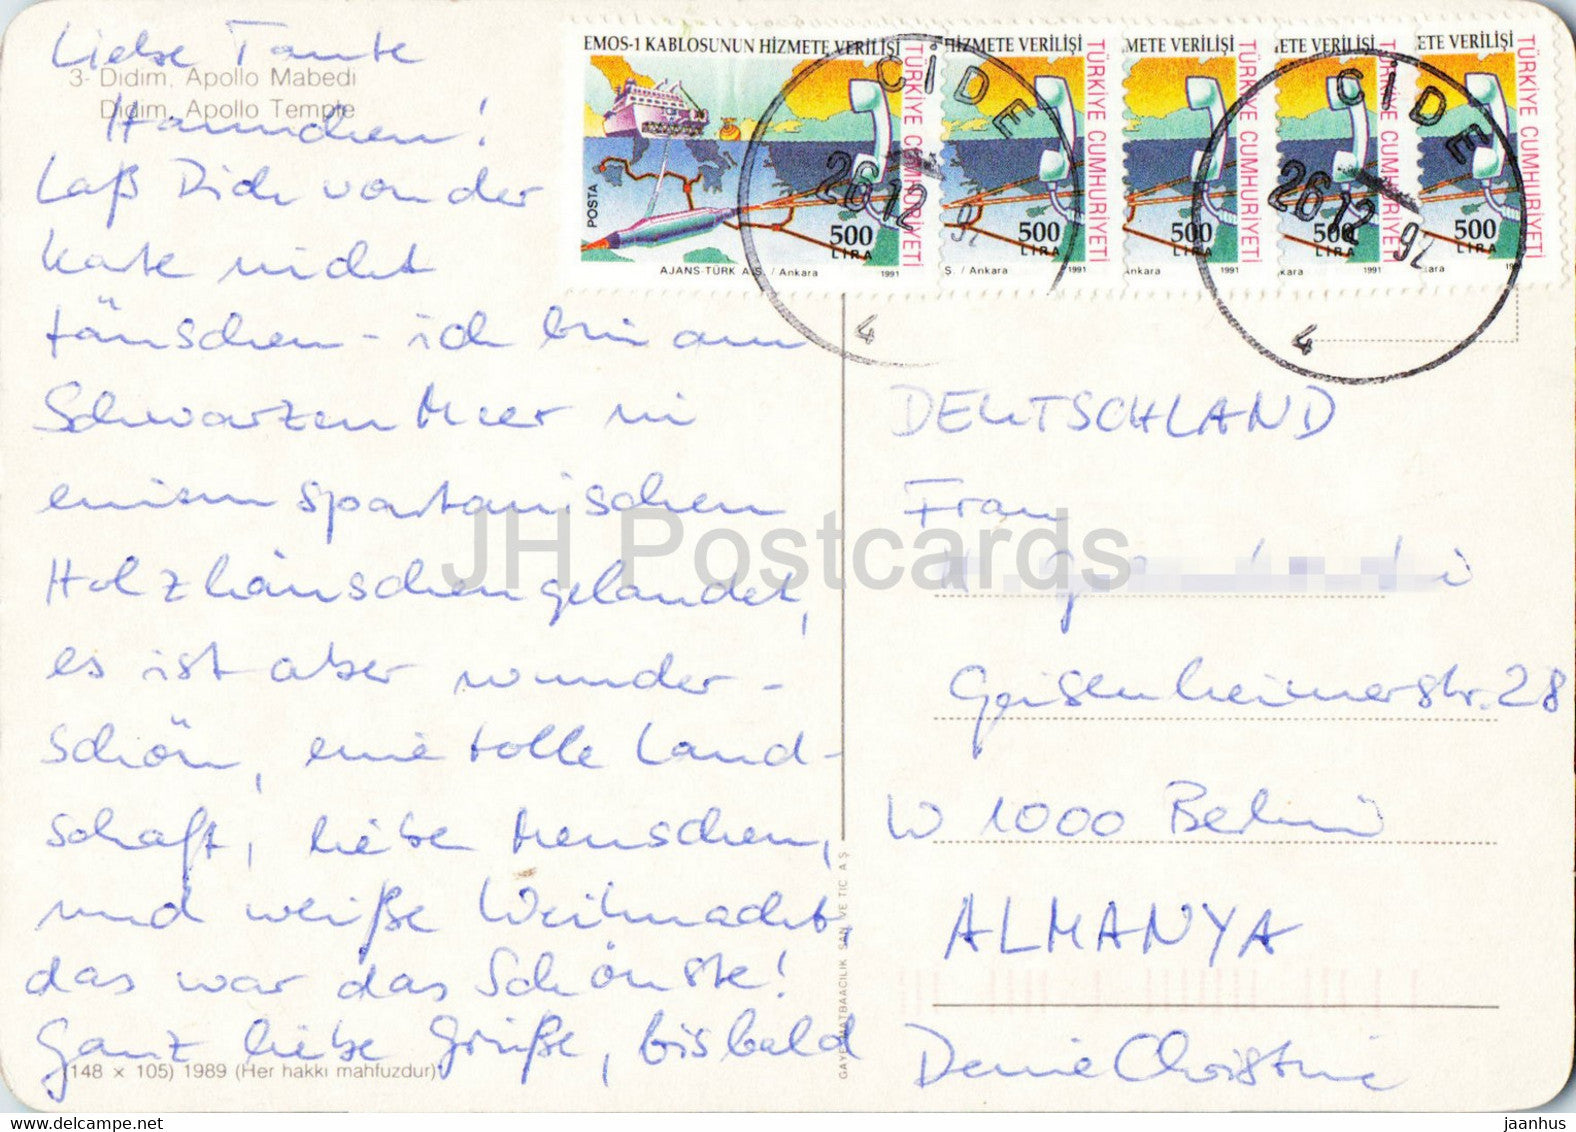 Liebe Tante
3- Didim, Apollo Mabedi
Didim, Apollo Temple
Hannchen!
Laß Dich von der
Karte nicht
täuschen - ich bin am
Schwarzen Meer in
einem spartanischen
Holzhäuschen gelandet,
es ist aber wunder-
schön, eine tolle Land-
schaft, liebe Menschen,
und weiße Weihnacht,
das war das Schönste!
Ganz liebe Grüße, bis bald
(148 x 105) 1989 (Her hakkı mahfuzdur)
GAYE MATBAACILIK SAN VE TIC A Ş
EMOS-1 KABLOSUNUN HİZMETE VERİLİŞİ
TÜRKİYE CUMHURİYETİ
POSTA
500
LİRA
AJANS-TÜRK A.Ş. / Ankara
1991
HİZMETE VERİLİŞİ
TÜRKİYE CUMHURİYETİ
500
LİRA
Ş. / Ankara
1991
METE VERİLİŞİ
TÜRKİYE CUMHURİYETİ
500
LİRA
Ankara
1991
ETE VERİLİŞİ
TÜRKİYE CUMHURİYETİ
500
LİRA
kara
1991
ETE VERİLİŞİ
TÜRKİYE CUMHURİYETİ
500
LİRA
1991
CİDE
26 12 92
4
CİDE
26 12 92
4
DEUTSCHLAND
Frau
Geisenheimerstr. 28
W 1000 Berlin
ALMANYA
Deine Christine
JH Postcards
www.delcampe.net
jaanhus